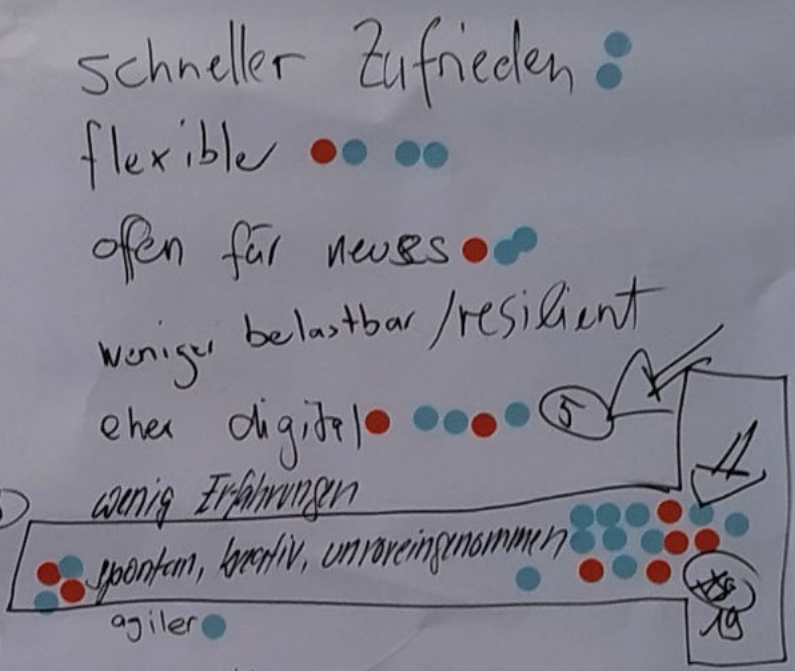 schneller Zufrieden
flexible
offen für neues
weniger belastbar /resilient
eher digital 5
wenig Erfahrungen
spontan, kreativ, unvoreingenommen
19
agiler